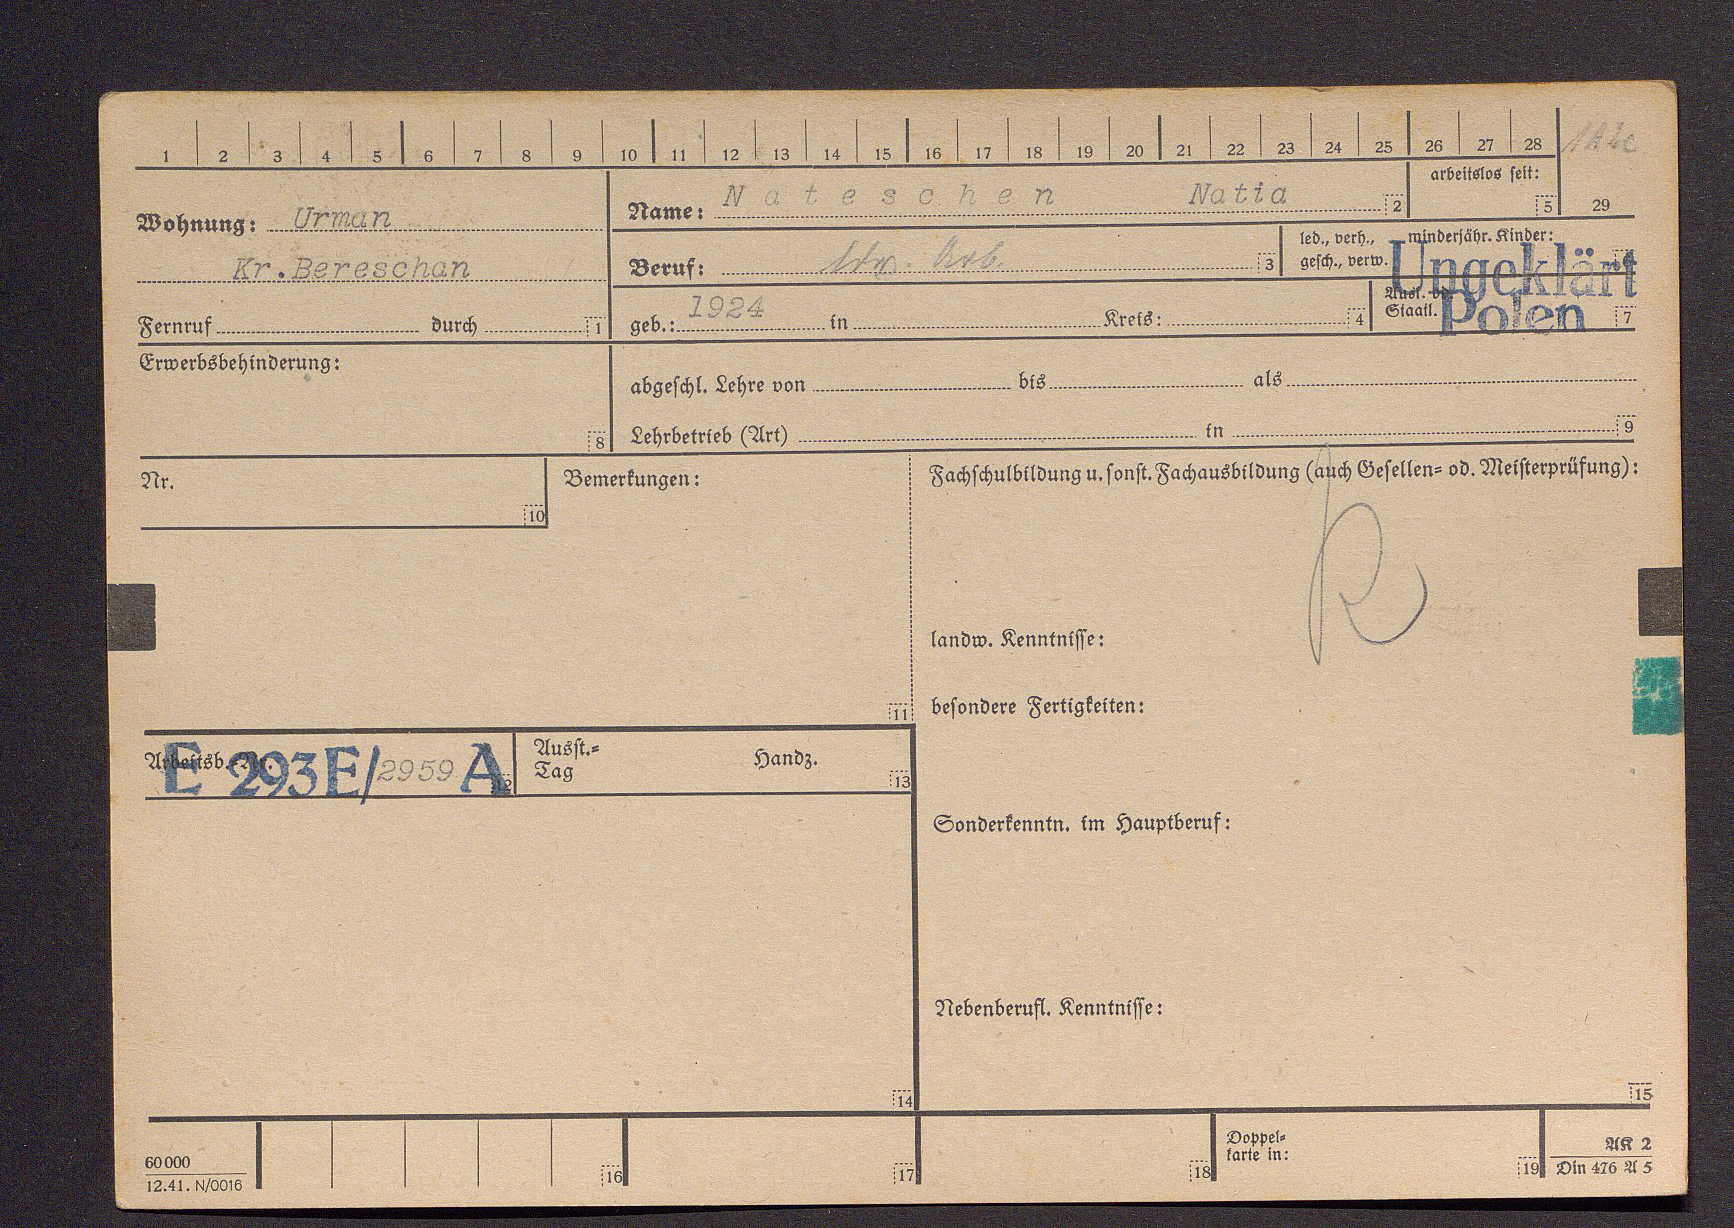 1 2 3 4 5 6 7 8 9 10 11 12 13 14 15 16 17 18 19 20 21 22 23 24 25 26 27 28
arbeitslos seit:
5 29
Wohnung: Urman
Kr.Bereschan
Fernruf durch 1
Name: Nateschen Natia 2
Beruf: Arb. 3
led., verh., minderjähr. Kinder:
gesch., verw. 6
Ungeklärt
geb.: 1924 in Kreis: 4
Ausl.
Staatl. 7
Polen
Erwerbsbehinderung:
8
abgeschl. Lehre von bis als
Lehrbetrieb (Art) in 9
Nr.
10
Bemerkungen:
11
Fachschulbildung u. sonst. Fachausbildung (auch Gesellen= od. Meisterprüfung):
R
landw. Kenntnisse:
besondere Fertigkeiten:
Arbeitsb.=Nr. E 293E/2959 A 12
Ausst.=
Tag Handz. 13
Sonderkenntn. im Hauptberuf:
Nebenberufl. Kenntnisse:
14
15
60 000
12.41. N/0016
16
17
18
Doppel=
karte in:
19
AK 2
Din 476 A 5